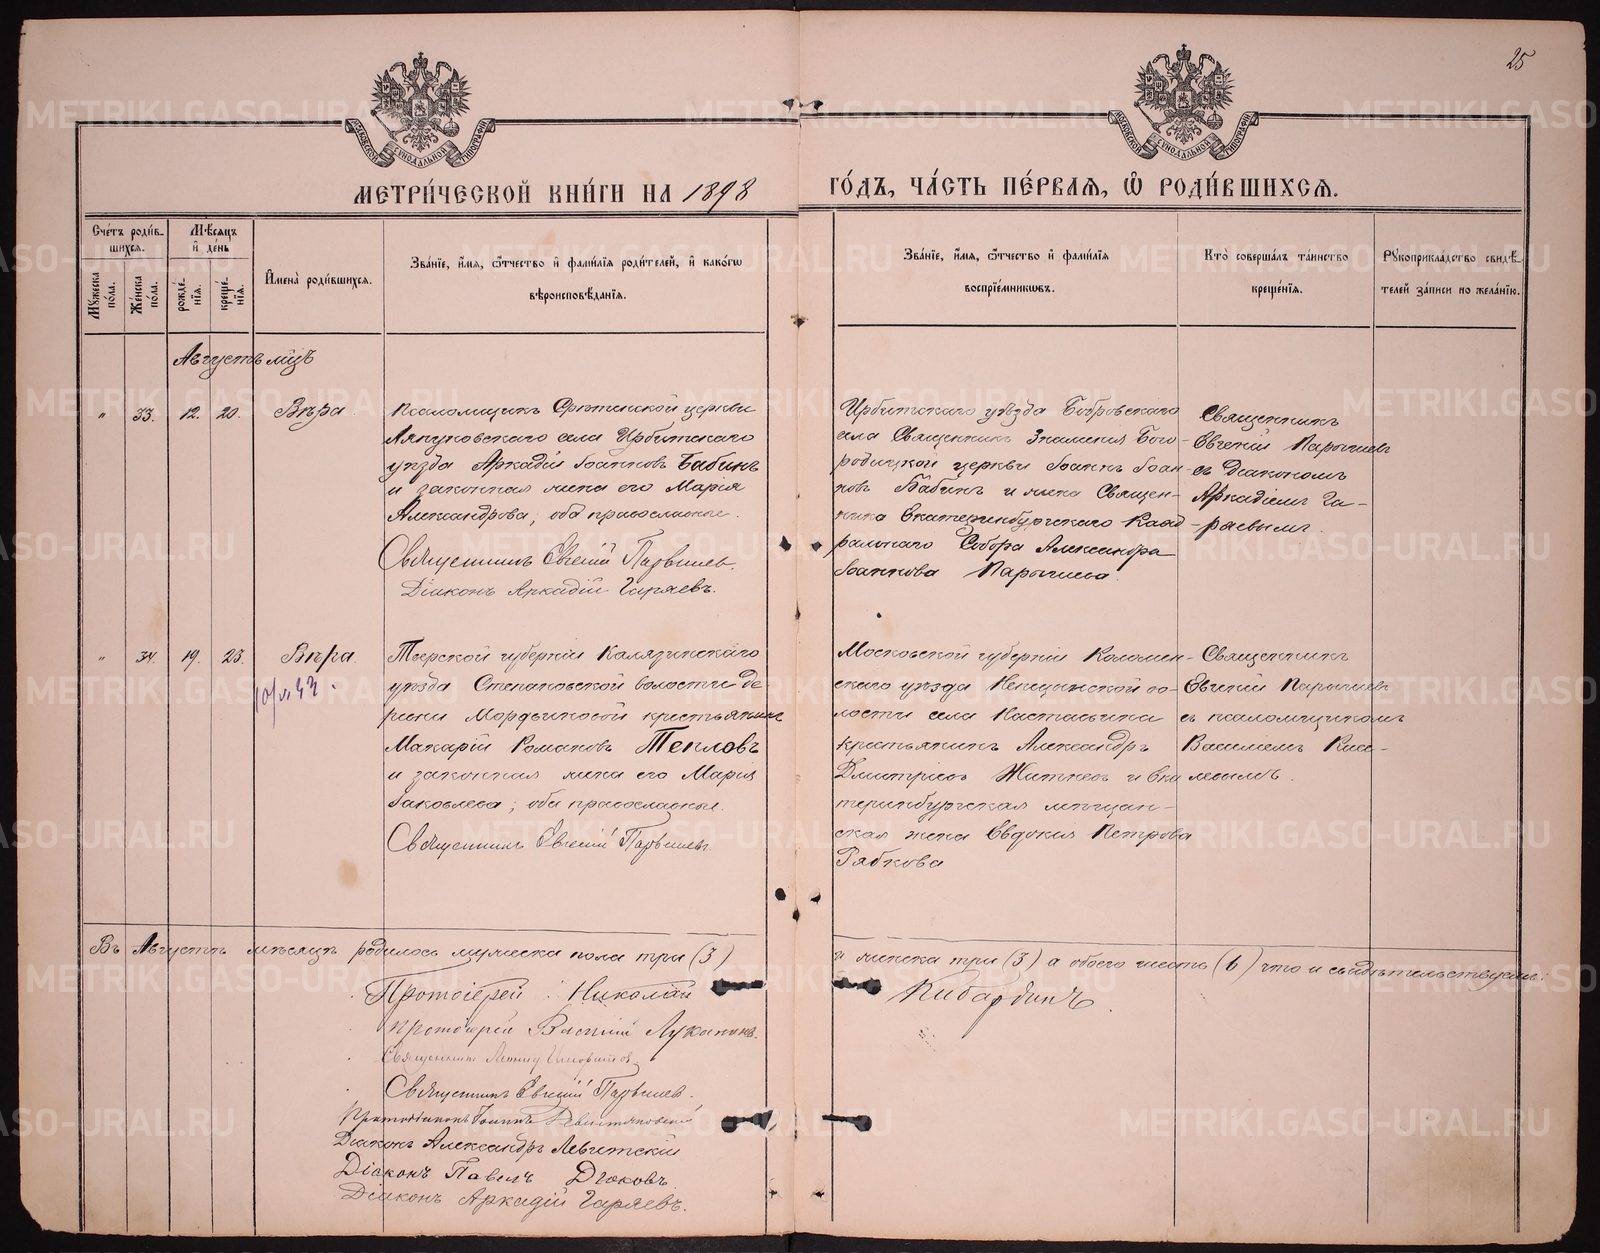 25
МОСКОВСКОЙ СѴНОДАЛЬНОЙ ТИПОГРАФІИ
МОСКОВСКОЙ СѴНОДАЛЬНОЙ ТИПОГРАФІИ
МЕТРИ́ЧЕСКОЙ КНИ́ГИ НА 1898 ГО́ДЪ, ЧА́СТЬ ПЕ́РВАѦ, Ѡ҆ РОДИ́ВШИХСѦ.
Сче́тъ роди́в-
шихсѧ.
Мꙋ́жеска по́ла.
Же́нска по́ла.
Мѣ́сѧцъ
и҆ де́нь
рожде́-
нїѧ.
креще́-
нїѧ.
И҆мена̀ роди́вшихсѧ.
Зва́нїе, и҆́мѧ, ѻ҆́тчество и҆ фами́лїѧ роди́телей, и҆ како́гѡ
вѣроисповѣ́данїѧ.
Зва́нїе, и҆́мѧ, ѻ҆́тчество и҆ фами́лїѧ
воспрїе́мникѡвъ.
Кто̀ соверша́лъ та́инство
креще́нїѧ.
Рꙋкоприкла́дство свидѣ́-
телей за́писи по жела́нїю.
Августъ мцъ
" 33. 12. 20. Вѣра.
Псаломщикъ Срѣтенской церкви
Ляпуновскаго села Ирбитскаго
уѣзда Аркадій Іоанновъ Бабинъ
и законная жена его Марія
Александрова; оба православные.
Священникъ Евгеній Парышевъ.
Діаконъ Аркадій Гаряевъ.
Ирбитскаго уѣзда Бобровскаго
села Священникъ Знаменія Бого-
родицкой церкви Іоаннъ Іоан-
новъ Бабинъ и жена Священ-
ника Екатеринбургскаго Каѳед-
ральнаго Собора Александра
Іоаннова Парышева.
Священникъ
Евгеній Парышевъ
съ діакономъ
Аркадіемъ Га-
ряевымъ.
" 34. 19. 23. Вѣра.
Тверской губерніи Калязинскаго
уѣзда Степановской волости де-
ревни Мордвиновой крестьянинъ
Макарій Романовъ Тепловъ
и законная жена его Марія
Іаковлева; оба православные.
Священникъ Евгеній Парышевъ.
Московской губерніи Коломен-
скаго уѣзда Непецынской во-
лости села Настасьина
крестьянинъ Александръ
Дмитріевъ Житневъ и Ека-
теринбургская мѣщан-
ская жена Евдокія Петрова
Рябкова
Священникъ
Евгеній Парышевъ
съ псаломщикомъ
Василіемъ Кисе-
левымъ.
Въ Августѣ мѣсяцѣ родилось мужеска пола три (3) и женска три (3) а обоего шесть (6) что и свидѣтельствуемъ:
Протоіерей Николай Кибардинъ.
Протоіерей Василій Луканинъ.
Священникъ Леонид
Священникъ Евгеній Парышевъ.
Протодіаконъ Іоаннъ
Діаконъ Александръ Левитскій
Діаконъ Павелъ Дюковъ.
Діаконъ Аркадій Гаряевъ.
METRIKI.GASO-URAL.RU